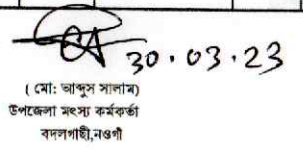 30.03.23
( মো: আব্দুস সালাম)
উপজেলা মৎস্য কর্মকর্তা
বদলগাছী,নওগাঁ